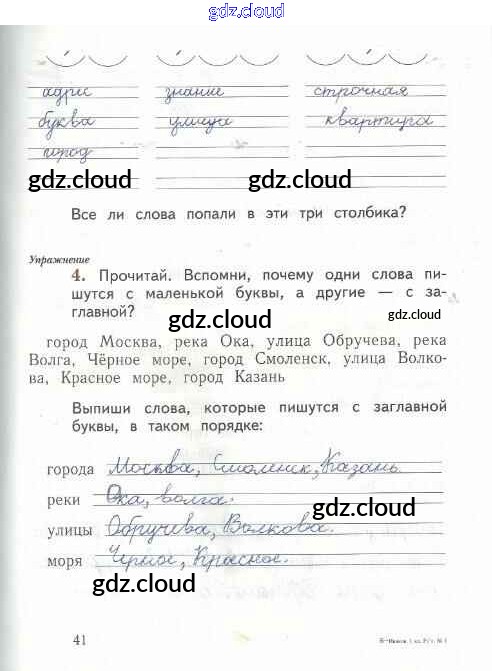 gdz.cloud
адрес знание строчная
буква улица квартира
город
gdz.cloud gdz.cloud
Все ли слова попали в эти три столбика?
Упражнение
4. Прочитай. Вспомни, почему одни слова пи-
шутся с маленькой буквы, а другие — с за-
главной?
gdz.cloud gdz.cloud
город Москва, река Ока, улица Обручева, река
Волга, Чёрное море, город Смоленск, улица Волко-
ва, Красное море, город Казань
Выпиши слова, которые пишутся с заглавной
буквы, в таком порядке:
города Москва, Смоленск, Казань
реки Ока, волга.
gdz.cloud
улицы Обручева, Волкова.
моря Черное, Красное.
gdz.cloud
41